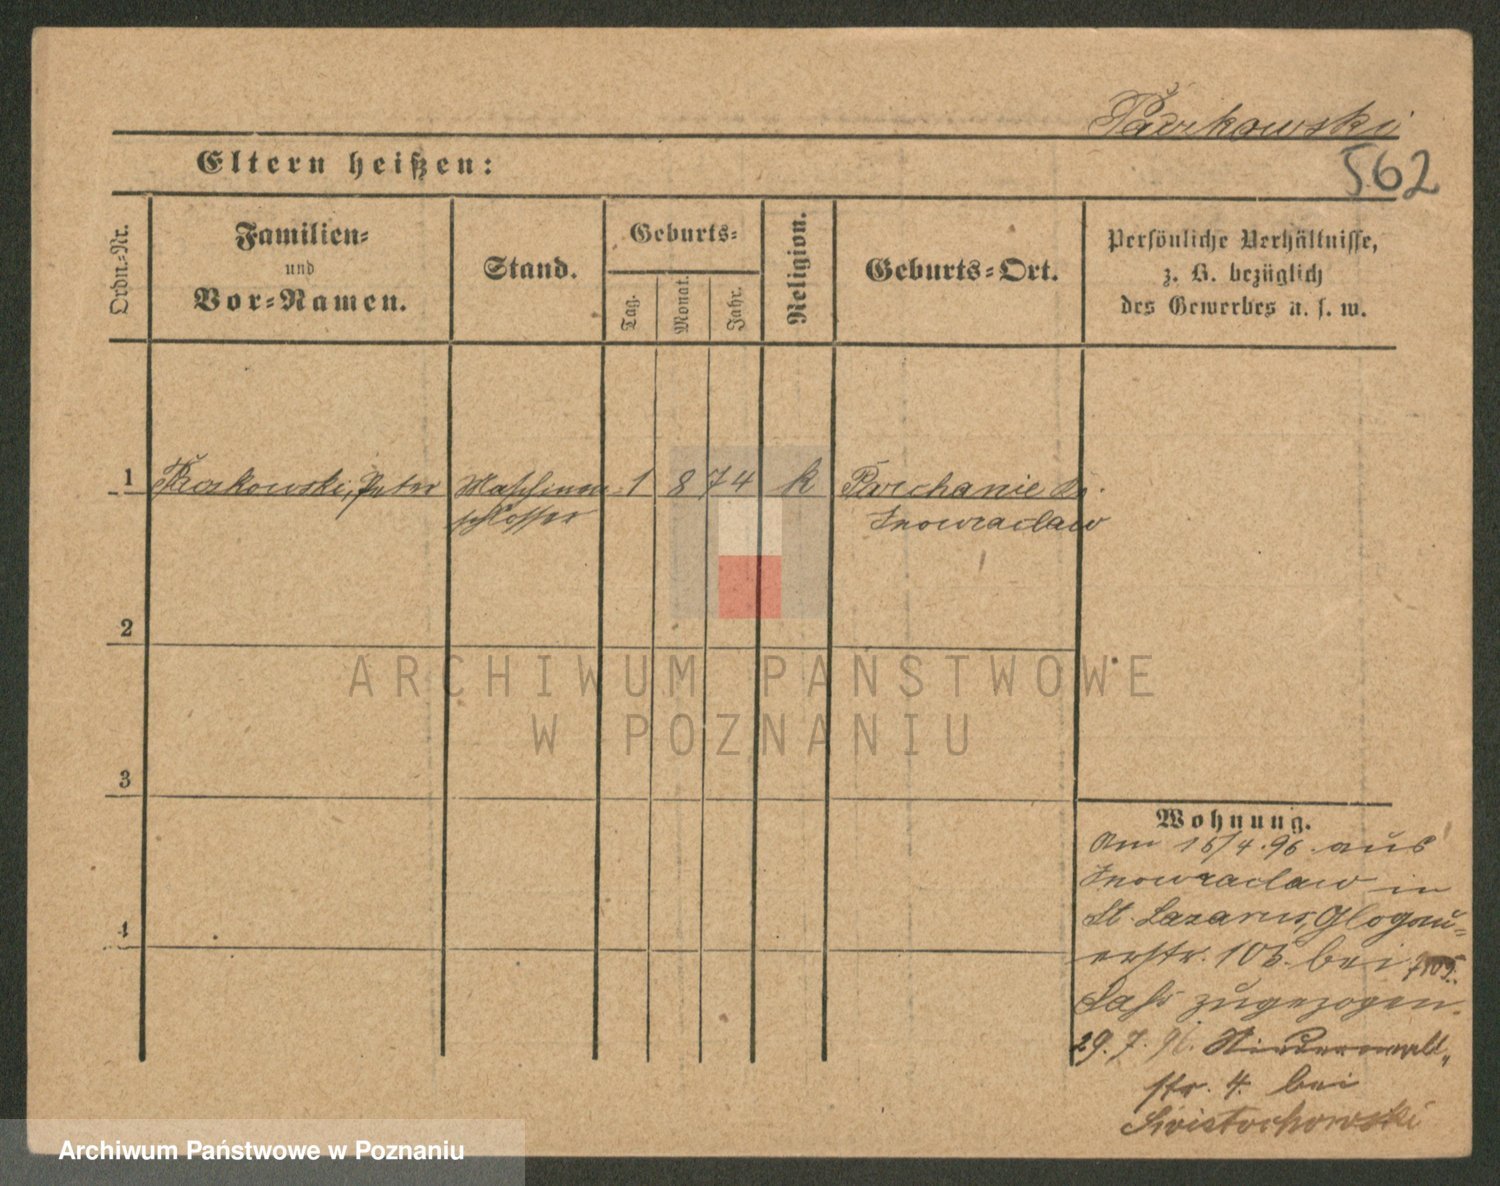 Parkowski
562
Eltern heißen:
Ordn.-Nr.
Familien-
und
Vor-Namen.
Stand.
Geburts-
Tag.
Monat.
Jahr.
Religion.
Geburts-Ort.
Persönliche Verhältnisse,
z. B. bezüglich
des Gewerbes u. s. w.
1 Parkowski, Peter Maschinen 1 8 74 k Parchanie Kr.
schlosser Inowraclaw
2
3
4
Wohnung.
Am 15/4.96. aus
Inowraclaw in
St. Lazarus, Glogau-
erstr. 105. bei
zugezogen.
29. 7. 96. Niederwald-
str. 4. bei
Swistochowski
ARCHIWUM PAŃSTWOWE
W POZNANIU
Archiwum Państwowe w Poznaniu